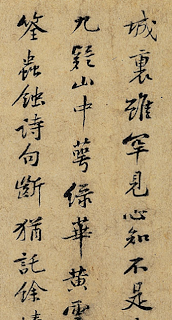 城裏雖罕見心知不是
九疑山中萼綠華黃雲
筌蟲蝕詩句斷猶託餘情